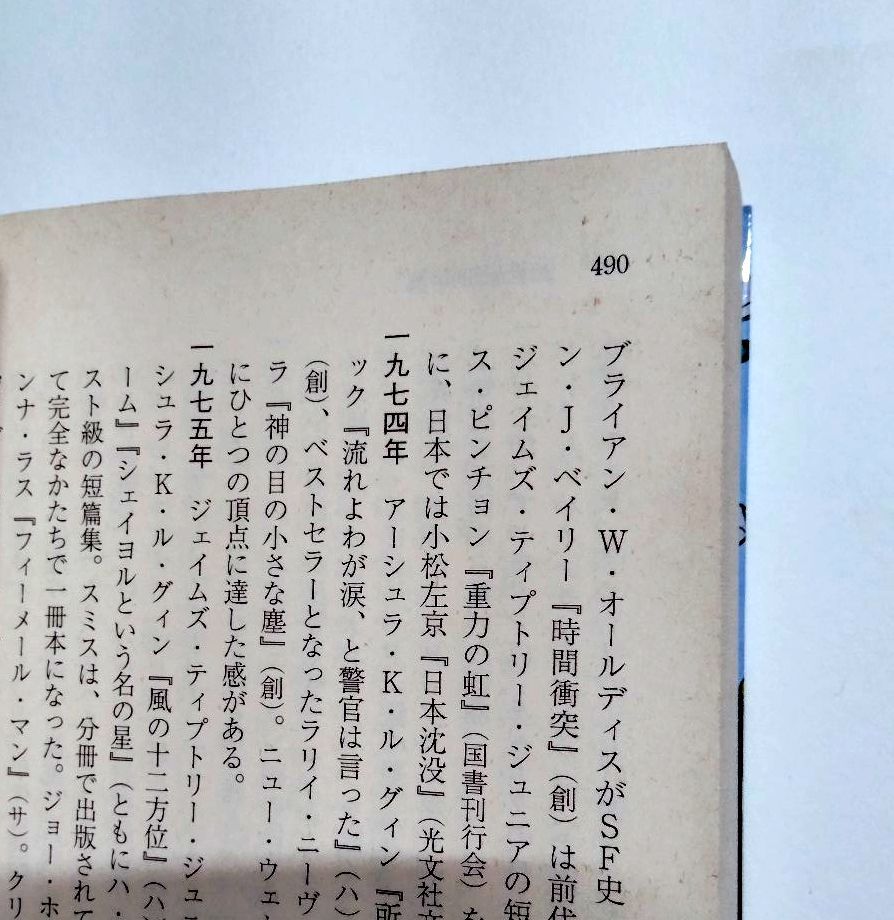 490
ブライアン・W・オールディスがSF史
ン・J・ベイリー『時間衝突』(創)は前代
ジェイムズ・ティプトリー・ジュニアの短
ス・ピンチョン『重力の虹』(国書刊行会)を
に、日本では小松左京『日本沈没』(光文社文
一九七四年 アーシュラ・K・ル・グィン『所
ック『流れよわが涙、と警官は言った』(ハ)
(創)、ベストセラーとなったラリイ・ニーヴ
ラ『神の目の小さな塵』(創)。ニュー・ウェ
にひとつの頂点に達した感がある。
一九七五年 ジェイムズ・ティプトリー・ジュニ
シュラ・K・ル・グィン『風の十二方位』(ハ)
ーム』『シェイヨルという名の星』(ともにハ・
スト級の短篇集。スミスは、分冊で出版されて
て完全なかたちで一冊本になった。ジョー・ホ
ンナ・ラス『フィーメール・マン』(サ)。クリ